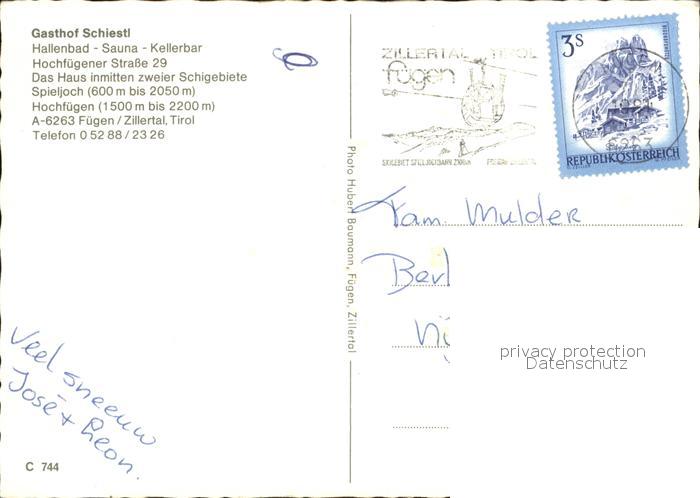 Gasthof Schiestl
Hallenbad - Sauna - Kellerbar
Hochfügener Straße 29
Das Haus inmitten zweier Schigebiete
Spieljoch (600 m bis 2050 m)
Hochfügen (1500 m bis 2200 m)
A-6263 Fügen / Zillertal, Tirol
Telefon 0 52 88 / 23 26
Veel sneeuw
José + Leon.
C 744
Photo Hubert Baumann, Fügen, Zillertal
ZILLERTAL TIROL
fügen
3S
REPUBLIK ÖSTERREICH
Fam. Mulder
Berl
privacy protection
Datenschutz